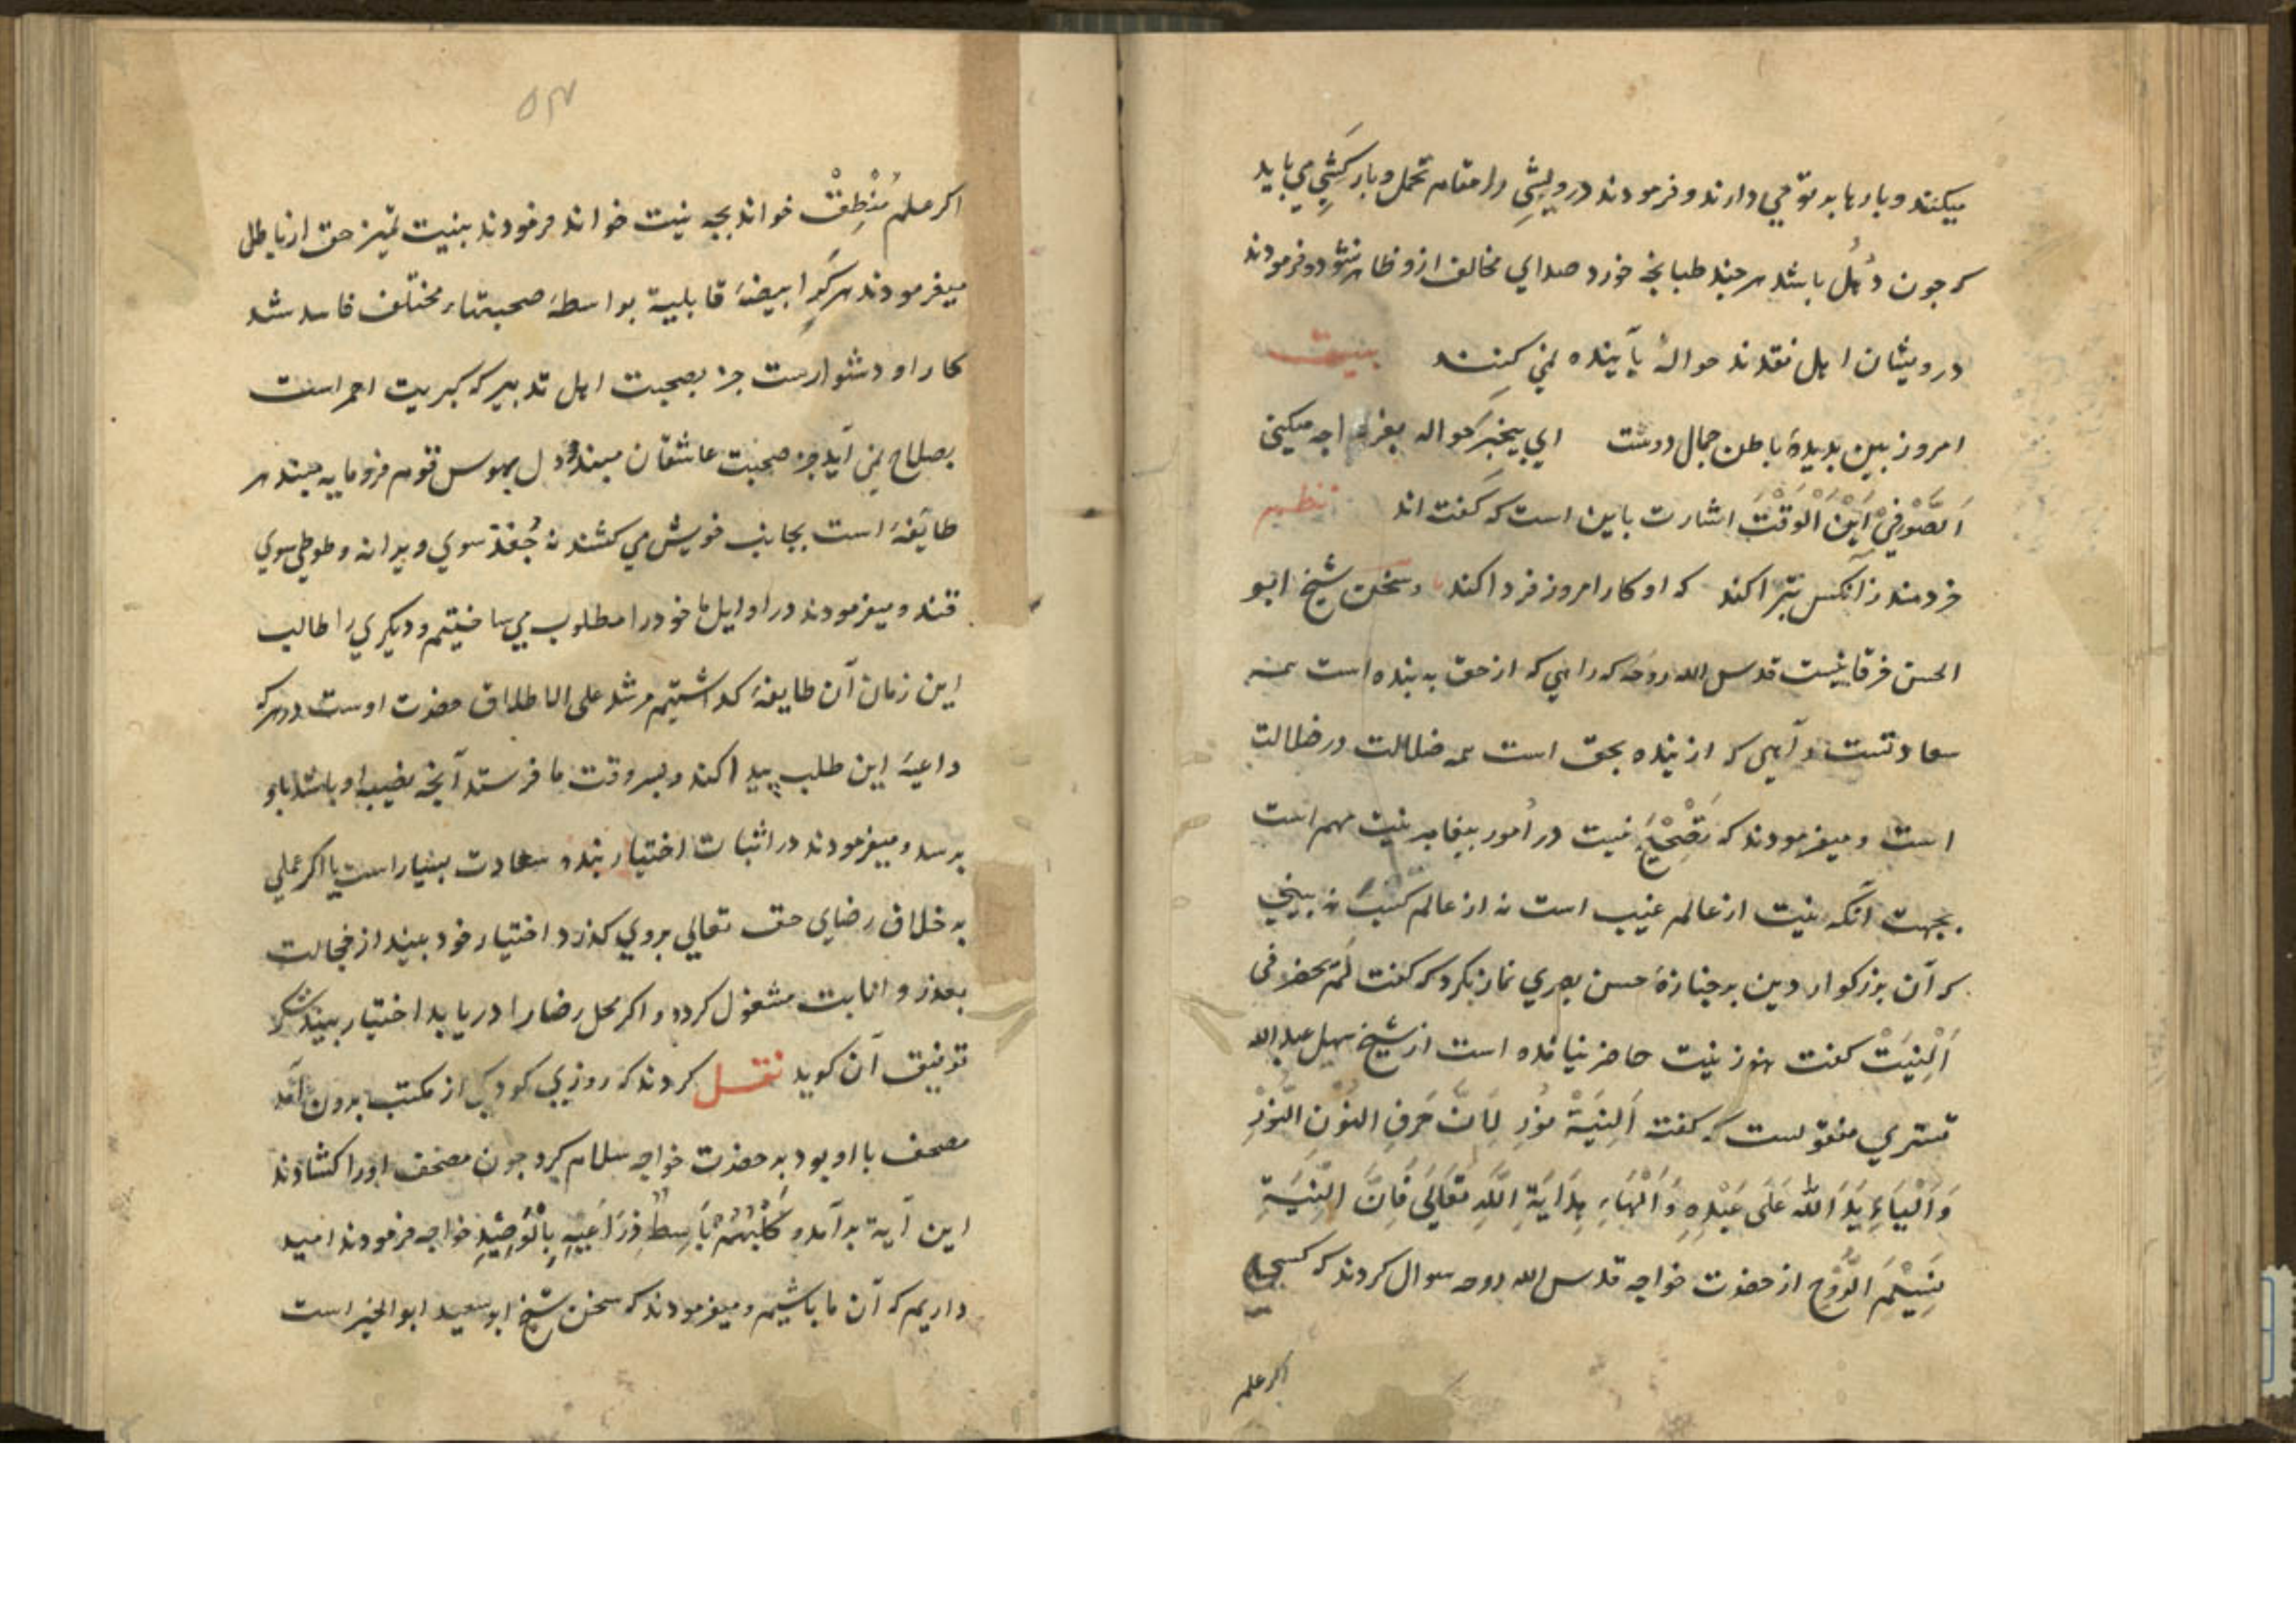 میکنند و بارها بر تو می دارند و فرمودند درویشی را مقام تحمل و بارکشی می باید
که چون دهل باشد هر چند طبانچه خورد صدای مخالف ازو ظاهر نشود و فرمودند
درویشان اهل نقدند حوالهٔ بآینده نمی کنند بیت
امروز بین بدیدهٔ باطن جمال دوست ای بیخبر حواله بفردا چه میکنی
اَلصُّوْفِيْ اِبْنُ الْوَقْتِ اشارت باین است که گفته اند نظم
خردمند زآنکس تبرا کند که او کار امروز فردا کند و سخن شیخ ابو
الحسن خرقانیست قدس الله روحه که راهی که از حق به بنده است همه
سعادتست و راهی که از بنده بحق است همه ضلالت در ضلالت
است و میفرمودند که تصحیح نیت در امور بیغایه نیت مهم است
بجهت آنکه نیت از عالم غیب است نه از عالم کسب نه بینی
که آن بزرکوار دین بر جنازهٔ حسن بصری نماز نکرد که گفت لم تحضرنی
اَلْنِیَتْ گفت هنوز نیت حاضر نیامده است از شیخ سهل عبدالله
تستری منقولست که گفته اَلنِیَةْ نُوْر لِاَنَّ حَرفِ النُوْنِ النُّوْرْ
وَ اَلْیَاءِ یَدَ اللّٰه عَلَی عَبْدِهِ وَ اَلْهَاءِ هِدَایَةِ اللَّهِ تَعَالَی فَاِنَّ النِّیَةِ
نَسِیْمَ الرُّوْحِ از حضرت خواجه قدس الله روحه سوال کردند که کسی
اکر علم
اکر علم مُنْطِقْ خواند بچه نیت خواند فرمودند بنیت تمیز حق از باطل
میفرمودند هر کرا بیضهٔ قابلیة بواسطهٔ صحبتهاء مختلف فاسد شد
کار او دشوارست جز بصحبت اهل تدبیر که کبریت احمر است
بصلاح نمی آید جز صحبت عاشقان مپسند دل بهوس قوم فرومایه مبند هر
طایفهٔ است بجانب خویش می کشند نه جُغد سوی ویرانه و طوطی سوی
قند و میفرمودند در اوایل ما خود را مطلوب می ساختیم و دیکری را طالب
این زمان آن طایفه کذاشتیم مرشد علی الاطلاق حضرت اوست در هر که
داعیهٔ این طلب پیدا کند و بسروقت ما فرستد آنچه نصیب او باشد باو
برسد و میفرمودند در اثبات اختیار بنده سعادت بسیار است یا اکر عملی
به خلاف رضای حق تعالی بروی کذرد اختیار خود بیند از خجالت
بعذر و انابت مشغول کردد و اکر محل رضا را دریابد اختیار بیند شکر
توفیق آن کوید نقل کردند که روزی کودکی از مکتب برون آمد
مصحف با او بود به حضرت خواجه سلام کرد چون مصحف او را کشادند
این آیة برآمد و کَلْبُهُمْ بَاسِطٌ ذِرَاعَیْهِ بِالْوَصِیْدِ خواجه فرمودند امید
داریم که آن ما باشیم و میفرمودند که سخن شیخ ابو سعید ابوالخیر است